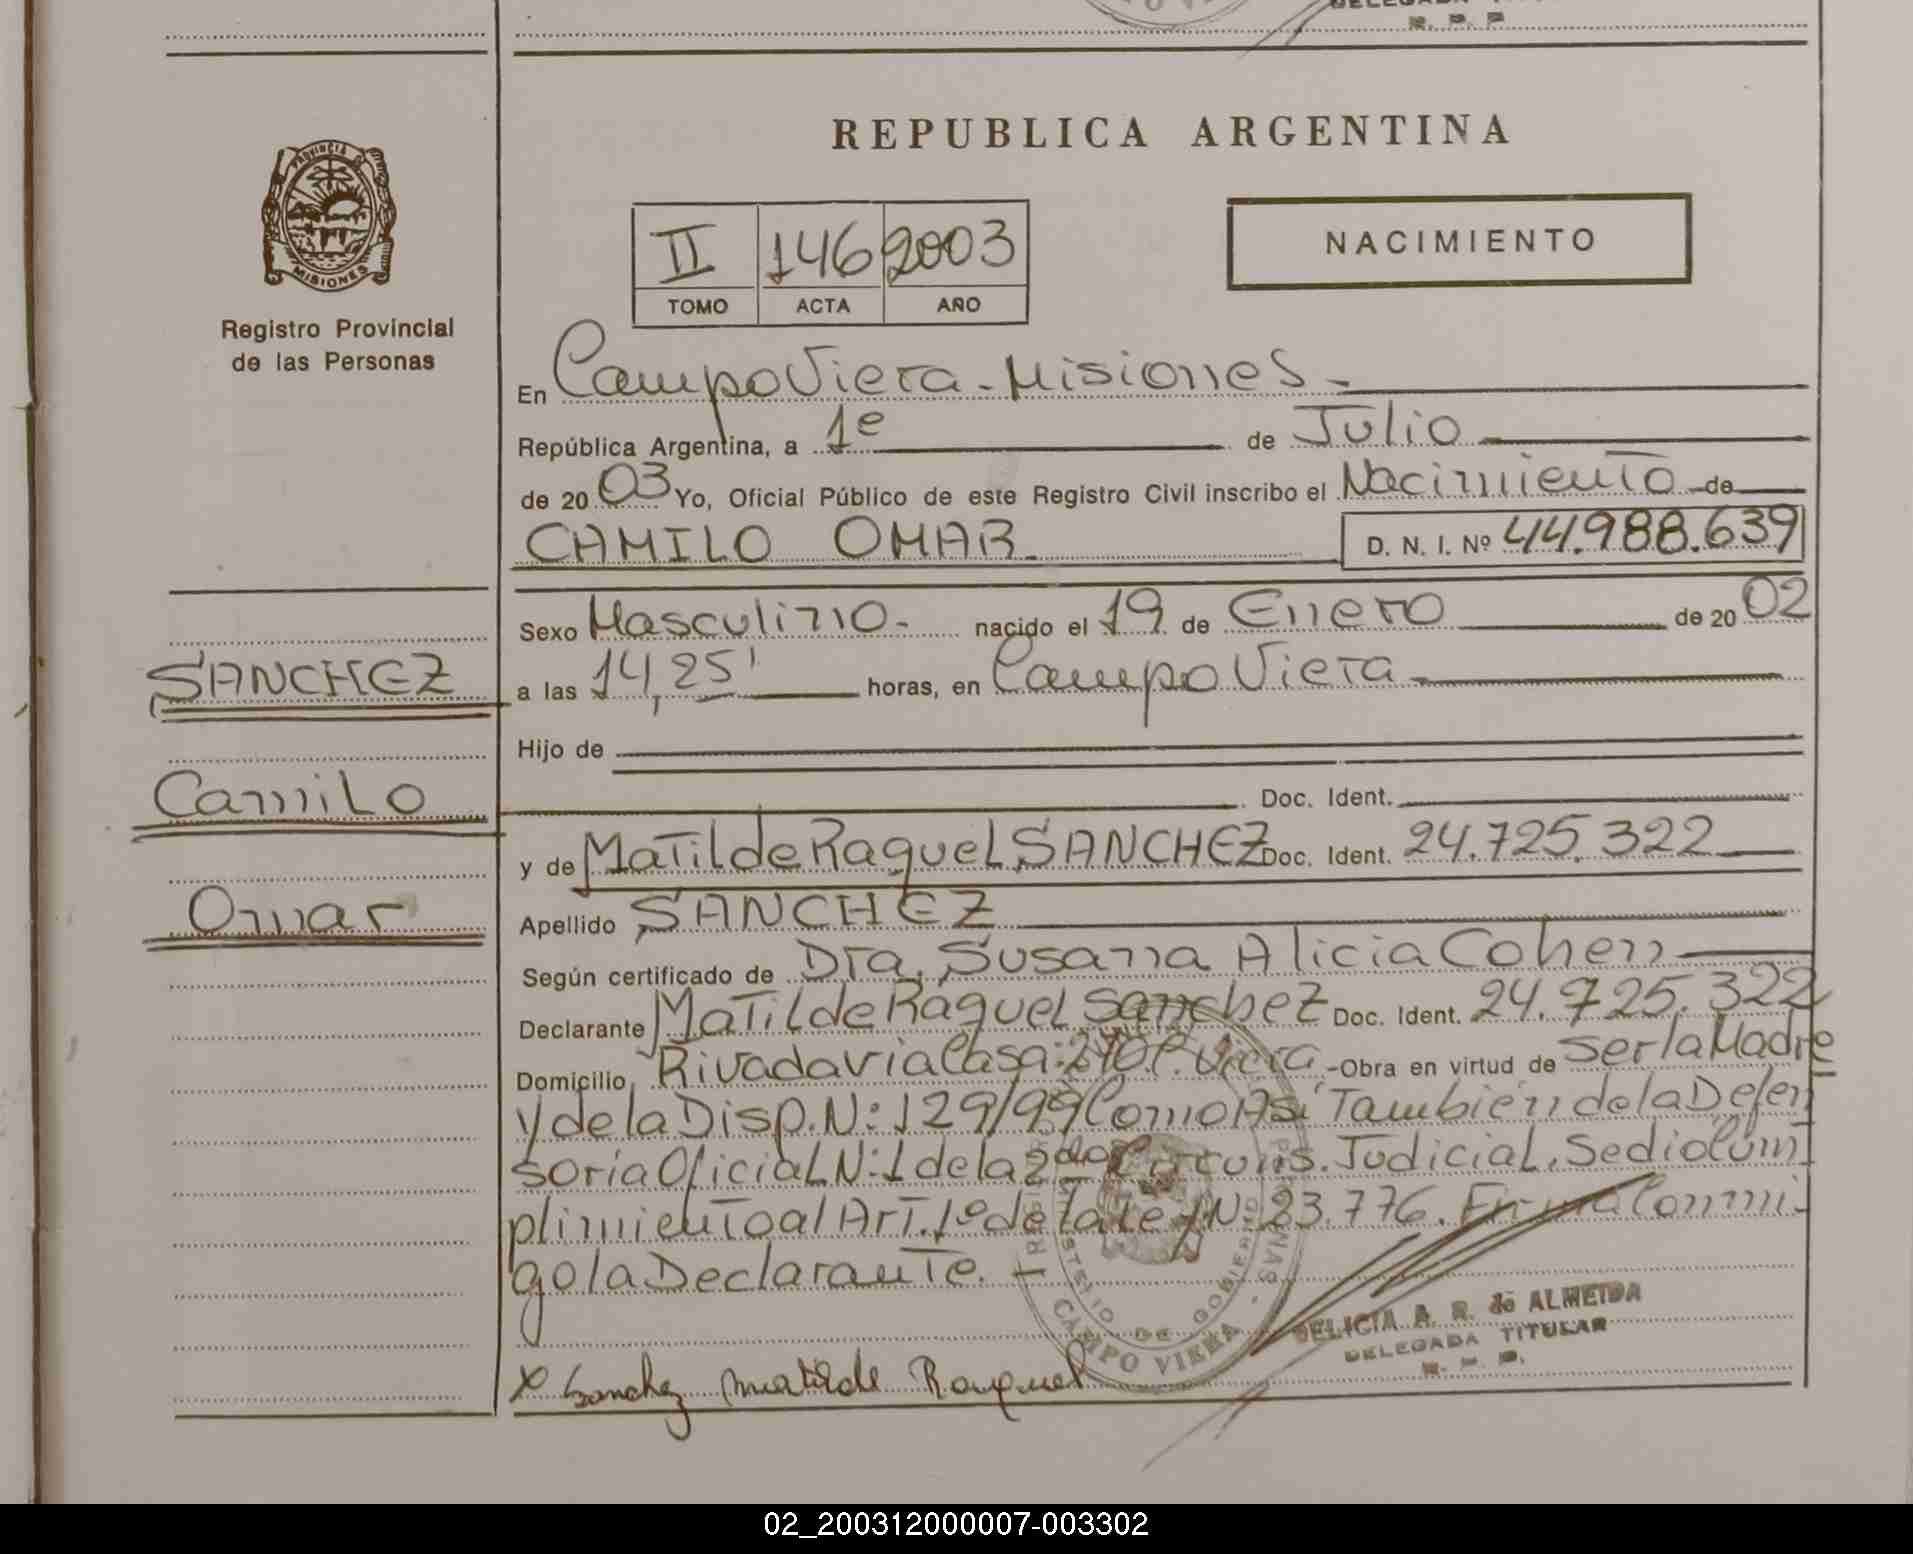 DELEGADA
R. P. P.
REPUBLICA ARGENTINA
PROVINCIA
MISIONES
Registro Provincial
de las Personas
II 146 2003
TOMO ACTA AÑO
NACIMIENTO
En Campo Viera - Misiones -
República Argentina, a 1º de Julio
de 20 03 Yo, Oficial Público de este Registro Civil inscribo el Nacimiento de
CAMILO OMAR D. N. I. Nº 44.988.639
Sexo Masculino.- nacido el 19 de Enero de 20 02
SANCHEZ
a las 14,25' horas, en Campo Viera
Hijo de
Camilo
Doc. Ident.
y de Matilde Raquel SANCHEZ Doc. Ident. 24.725.322
Omar
Apellido SANCHEZ
Según certificado de Dra. Susana Alicia Cohen
Declarante Matilde Raquel Sanchez Doc. Ident. 24.725.322
Domicilio Rivadavia Casa: 240 C. Viera -Obra en virtud de ser la Madre
y de la Disp. N: 129/99 Como Así También de la Defen
soría Oficial N: 1 de la 2da Circuns. Judicial, Se dio Cum
plimiento al Art. 1º de la Ley N: 23.776. Firma Conmi-
go la Declarante.
MINISTERIO DE GOBIERNO
CAMPO VIERA
DELICIA A. R. de ALMEIDA
DELEGADA TITULAR
R. P. P.
x Sanchez Matilde Raquel
02_200312000007-003302